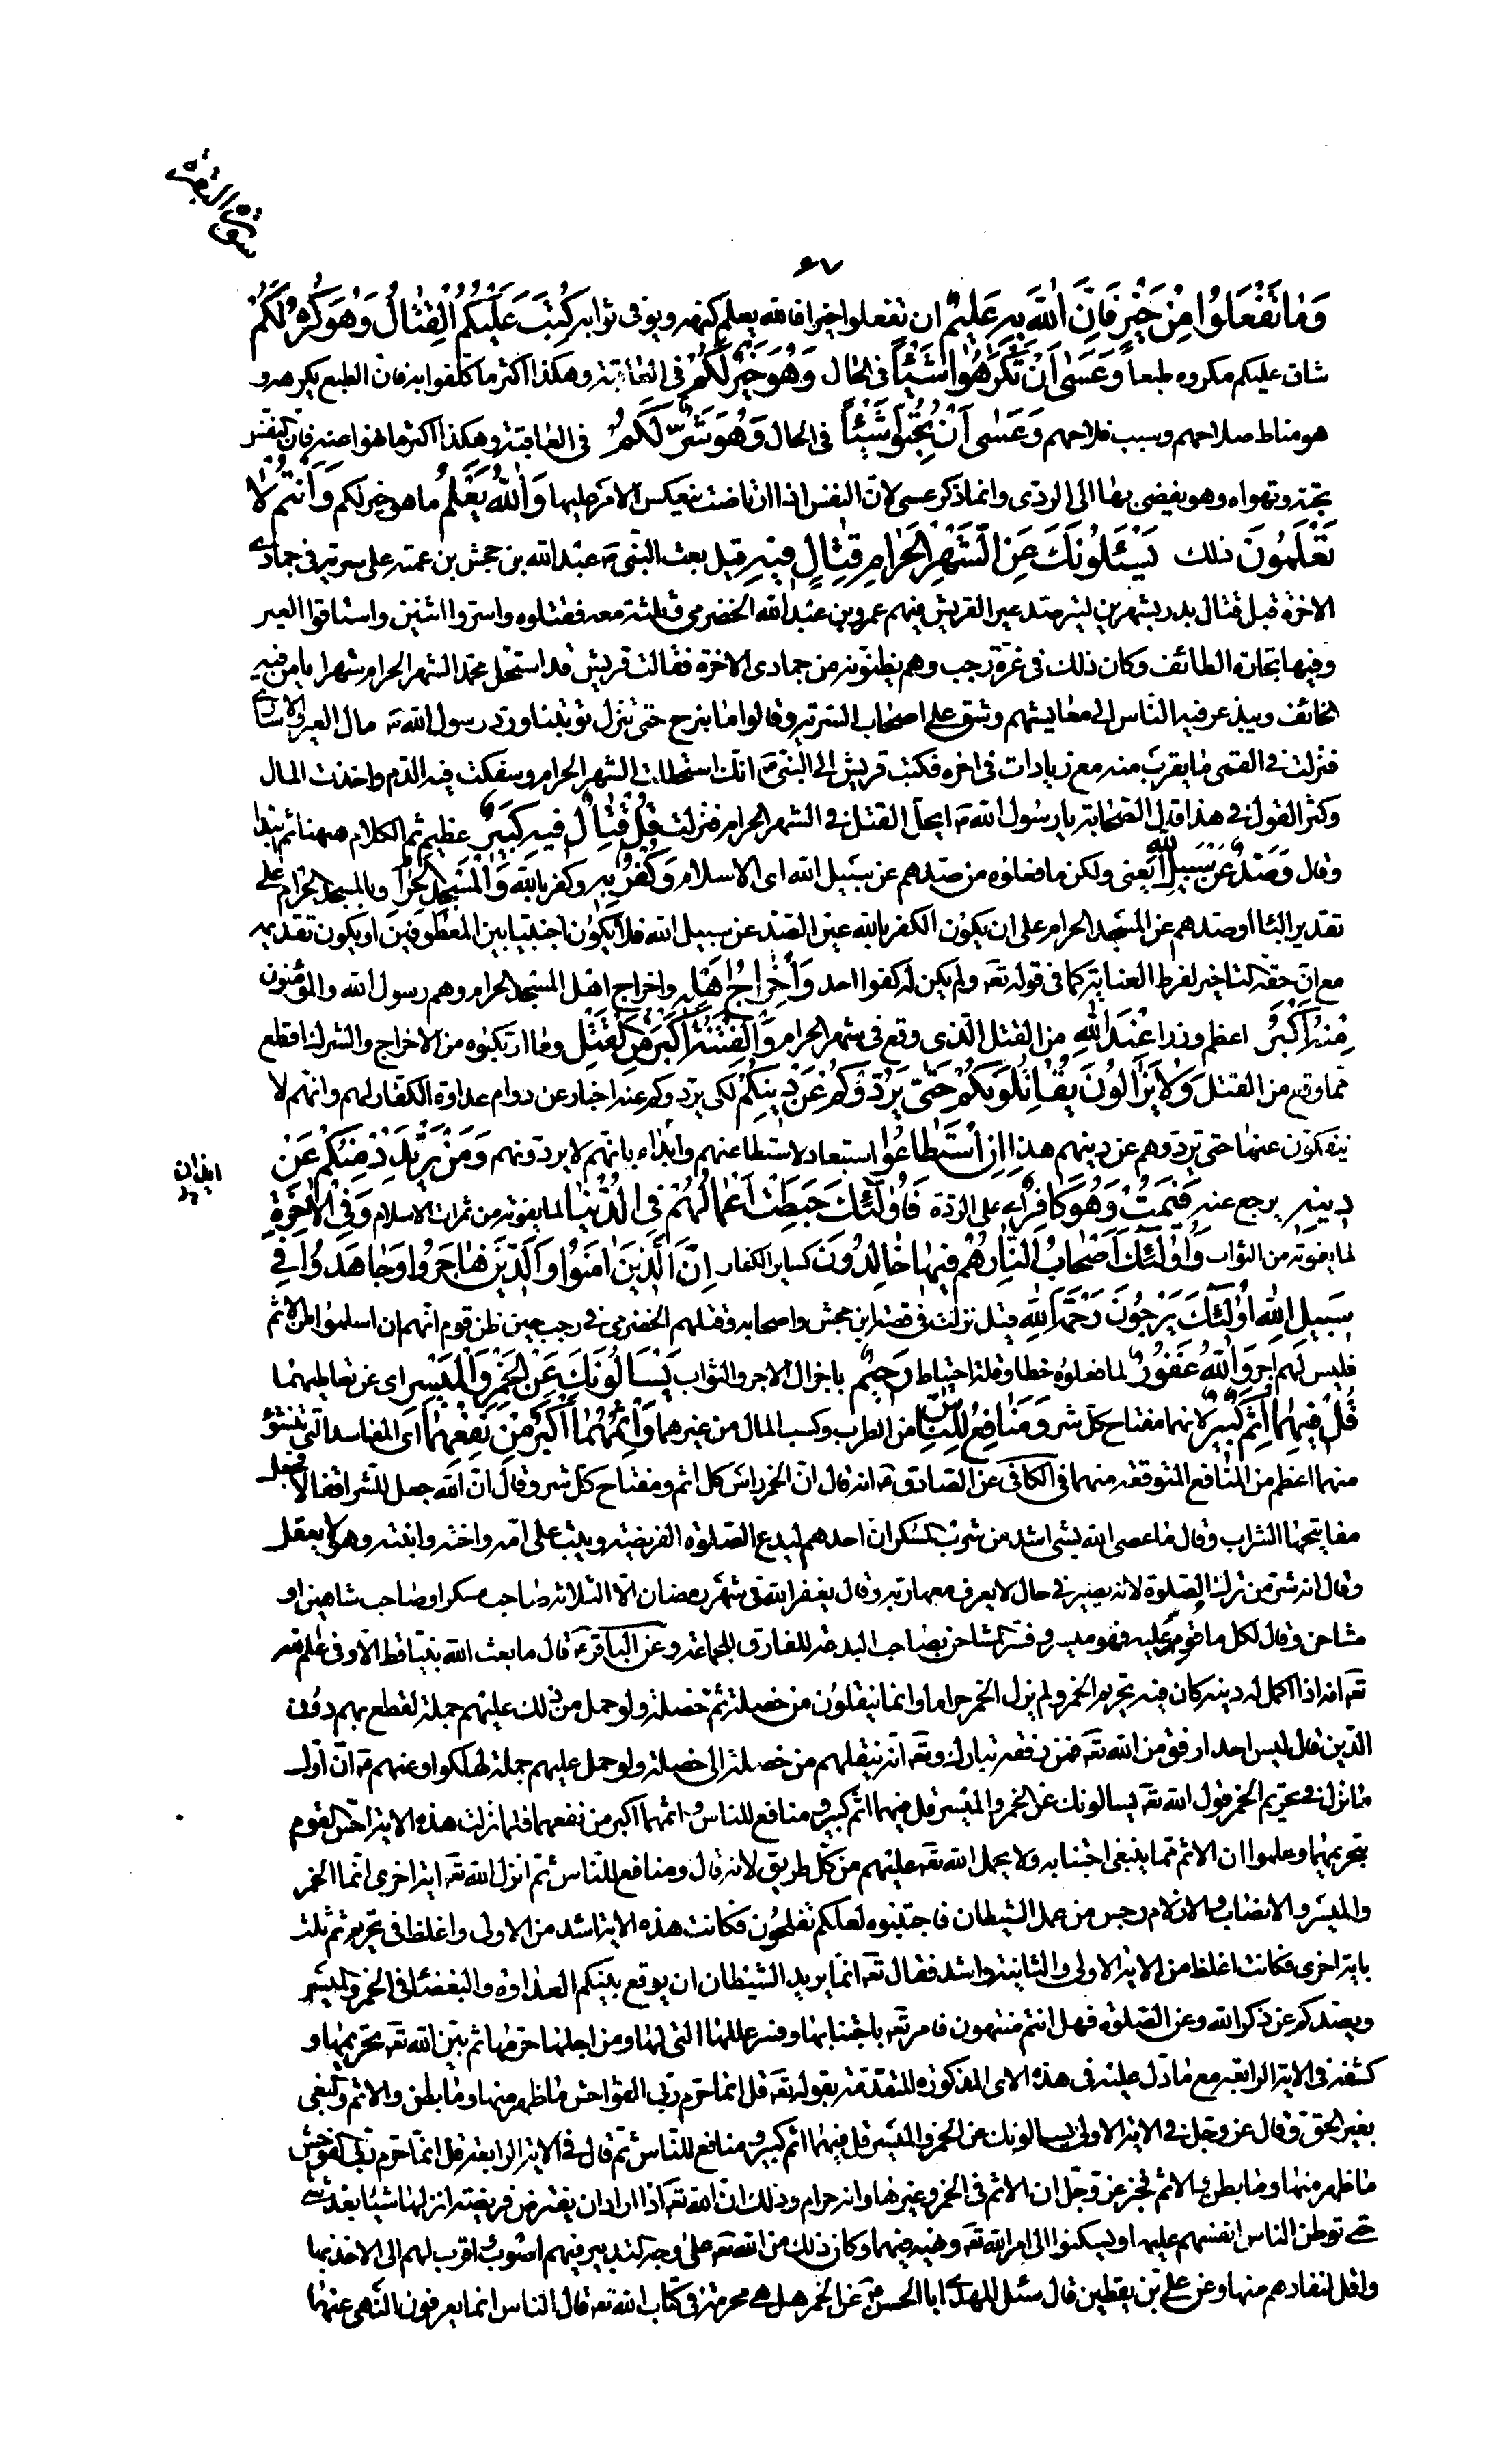 سورة البقرة
٦٧
وَمٰا تَفْعَلُوا مِنْ خَيْرٍ فَاِنَّ اللّٰهَ بِهِ عَلِيمٌ ان تفعلوا خيرا فالله يعلم كنهه ويوفى ثوابه كُتِبَ عَلَيْكُمُ الْقِتٰالُ وَهُوَ كُرْهٌ لَكُمْ
شاق عليكم مكروه طبعاً وَعَسىٰ اَنْ تَكْرَهُوا شَيْئاً فى الحال وَهُوَ خَيْرٌ لَكُمْ فى العاقبة وهكذا اكثر ما كلّفوا به فان الطبع يكرهه و
هو مناط صلاحهم وسبب فلاحهم وَعَسىٰ اَنْ تُحِبُّوا شَيْئاً فى الحال وَهُوَ شَرٌّ لَكُمْ فى العاقبة وهكذا اكثر ما نهوا عنه فان النفس
تحبّه وتهواه وهو يفضى بها الى الردى وانما ذكر عسى لان النفس اذا ارتاضت ينعكس الامر عليها وَاللّٰهُ يَعْلَمُ ما هو خير لكم وَاَنْتُمْ لٰا
تَعْلَمُونَ ذلك يَسْئَلُونَكَ عَنِ الشَّهْرِ الْحَرٰامِ قِتٰالٍ فِيهِ قيل بعث النبى ص عبد الله بن جحش بن عمته على سرية فى جمادى
الاخرة قبل قتال بدر بشهرين ليترصد عير القريش فيهم عمرو بن عبد الله الخضرمى وثلثة معه فقتلوه واسروا اثنين واستاقوا العير
وفيها تجارة الطائف وكان ذلك فى غرّة رجب وهم يظنونه من جمادى الاخرة فقالت قريش قد استحل محمد الشهر الحرام شهرا يامن فيه
الخائف ويبذعر فيه الناس الى معايشهم وشق على اصحاب السرية وقالوا ما نبرح حتى تنزل توبتنا ورد رسول الله ص مال العير والاسارى
فنزلت فى القمى ما يقرب منه مع زيادات فى اخره فكتب قريش الى النبى ص انك استحللت الشهر الحرام وسفكت فيه الدم واخذت المال
وكثر القول فى هذا قال الصحابة يا رسول الله ص ايحل القتل فى الشهر الحرام فنزلت قُلْ قِتٰالٌ فِيهِ كَبِيرٌ عظيم تم الكلام ههنا ثم ابتدا
وقال وَصَدٌّ عَنْ سَبِيلِ اللّٰهِ يعنى ولكن ما فعلوه من صدهم عن سبيل الله اى الاسلام وَكُفْرٌ بِهِ وكفر بالله وَالْمَسْجِدِ الْحَرٰامِ وبالمسجد الحرام على
تقدير الباء او صدهم عن المسجد الحرام على ان يكون الكفر بالله عين الصد عن سبيل الله فلا يكون اجنبيا بين المعطوفين او يكون تقديمه
مع ان حقه التاخير لفرط العناية كما فى قوله تعه ولم يكن له كفوا احد وَاِخْرٰاجُ اَهْلِهِ واخراج اهل المسجد الحرام وهم رسول الله والمؤمنون
مِنْهُ اَكْبَرُ اعظم وزرا عِنْدَ اللّٰهِ من القتل الذى وقع فى شهر الحرام وَالْفِتْنَةُ اَكْبَرُ مِنَ الْقَتْلِ وما ارتكبوه من الاخراج والشرك افظع
مما وقع من القتل وَلٰا يَزٰالُونَ يُقٰاتِلُونَكُمْ حَتّٰى يَرُدُّوكُمْ عَنْ دِينِكُمْ لكى يردوكم عنه اخبار عن دوام عداوة الكفار لهم وانهم لا
ينفكون عنها حتى يردوهم عن دينهم هذا اِنِ اسْتَطٰاعُوا استبعاد لاستطاعتهم وايذاء بانهم لا يردونهم وَمَنْ يَرْتَدِدْ مِنْكُمْ عَنْ
دِينِهِ يرجع عنه فَيَمُتْ وَهُوَ كٰافِرٌ اى على الردة فَاُولٰئِكَ حَبِطَتْ اَعْمٰالُهُمْ فِى الدُّنْيٰا لما يفوته من ثمرات الاسلام وَفِى الْاٰخِرَةِ
لما يفوته من الثواب وَاُولٰئِكَ اَصْحٰابُ النّٰارِ هُمْ فِيهٰا خٰالِدُونَ كساير الكفار اِنَّ الَّذِينَ اٰمَنُوا وَالَّذِينَ هٰاجَرُوا وَجٰاهَدُوا فِى
سَبِيلِ اللّٰهِ اُولٰئِكَ يَرْجُونَ رَحْمَةَ اللّٰهِ قيل نزلت فى قصة ابن جحش واصحابه وقتلهم الخضرمى فى رجب حين ظن قوم انهم ان اسلموا من الاثم
فليس لهم اجر وَاللّٰهُ غَفُورٌ لما فعلوه خطا وقلة احتياط رَحِيمٌ باجزال الاجر والثواب يَسْاَلُونَكَ عَنِ الْخَمْرِ وَالْمَيْسِرِ اى عن تعاطيهما
قُلْ فِيهِمٰا اِثْمٌ كَبِيرٌ لانهما مفتاح كل شر وَمَنٰافِعُ لِلنّٰاسِ من الطرب وكسب المال من غيرهما وَاِثْمُهُمٰا اَكْبَرُ مِنْ نَفْعِهِمٰا اى المفاسد التى تنشؤ
منهما اعظم من المنافع المتوقعة منهما فى الكافى عن الصادق ع انه قال ان الخمر راس كل اثم ومفتاح كل شر وقال ان الله جعل للشر اقفالا فجعل
مفاتيحها الشراب وقال ما عصى الله بشى اشد من شرب المسكر ان احدهم ليدع الصلوة الفريضة ويثب على امه واخته وابنته وهو لا يعقل
وقال انه شر من ترك الصلوة لانه يصير فى حال لا يعرف معها ربه وقال يغفر الله فى شهر رمضان الا لثلاثة صاحب مسكر او صاحب شاهين او
مشاحن وقال لكل ما قومر عليه فهو ميسر وفسر المشاحن بصاحب البدعة المفارق للجماعة وعن الباقر ع قال ما بعث الله نبيا قط الا وفى علم الله
تعه انه اذا اكمل له دينه كان فيه تحريم الخمر ولم يزل الخمر حراما وانما ينقلون من خصلة ثم خصلة ولو حمل من ذلك عليهم جملة لقطع بهم دون
الدين قال ليس احد ارفق من الله تعه فمن رفقه تبارك وتعه انه ينقلهم من خصلة الى خصلة ولو حمل عليهم جملة لهلكوا وعنهم ع ان اول
ما نزل فى تحريم الخمر قول الله تعه يسالونك عن الخمر والميسر قل فيهما اثم كبير ومنافع للناس واثمهما اكبر من نفعهما فلما نزلت هذه الاية احس القوم
بتحريمها وعلموا ان الاثم مما ينبغى اجتنابه ولا يحمل الله تعه عليهم من كل طريق لانه قال ومنافع للناس ثم انزل الله تعه اية اخرى انما الخمر
والميسر والانصاب والازلام رجس من عمل الشيطان فاجتنبوه لعلكم تفلحون فكانت هذه الاية اشد من الاولى واغلظ فى تحريم ثم ثلث
باية اخرى فكانت اغلظ من الاية الاولى والثانية واشد فقال تعه انما يريد الشيطان ان يوقع بينكم العداوة والبغضاء فى الخمر والميسر
ويصدكم عن ذكر الله وعن الصلوة فهل انتم منتهون فامر تعه باجتنابها وفسر عللها التى لها ومن اجلها حرمها ثم بين الله تعه تحريمها و
كشفه فى الاية الرابعة مع ما دل عليه فى هذه الاى المذكورة المتقدمة بقوله تعه قل انما حرم ربى الفواحش ما ظهر منها وما بطن والاثم والبغى
بغير الحق وقال عز وجل فى الاية الاولى يسالونك عن الخمر والميسر قل فيهما اثم كبير ومنافع للناس ثم قال فى الاية الرابعة قل انما حرم ربى الفواحش
ما ظهر منها وما بطن والاثم فخبر عز وجل ان الاثم فى الخمر وغيرها وانه حرام وذلك ان الله تعه اذا اراد ان يفترض فريضة انزلها شيئا بعد شئ
حتى توطن الناس انفسهم عليها ويسكنوا الى امر الله تعه ونهيه فيهما وكان ذلك من الله تعه على وجه التدبير فيهم اصوب واقرب لهم الى الاخذ بها
واقل لنفادهم منها وعن على بن يقطين قال سئل المهدى ابا الحسن ع عن الخمر هل هى محرمة فى كتاب الله تعه قال الناس انما يعرفون النهى عنها